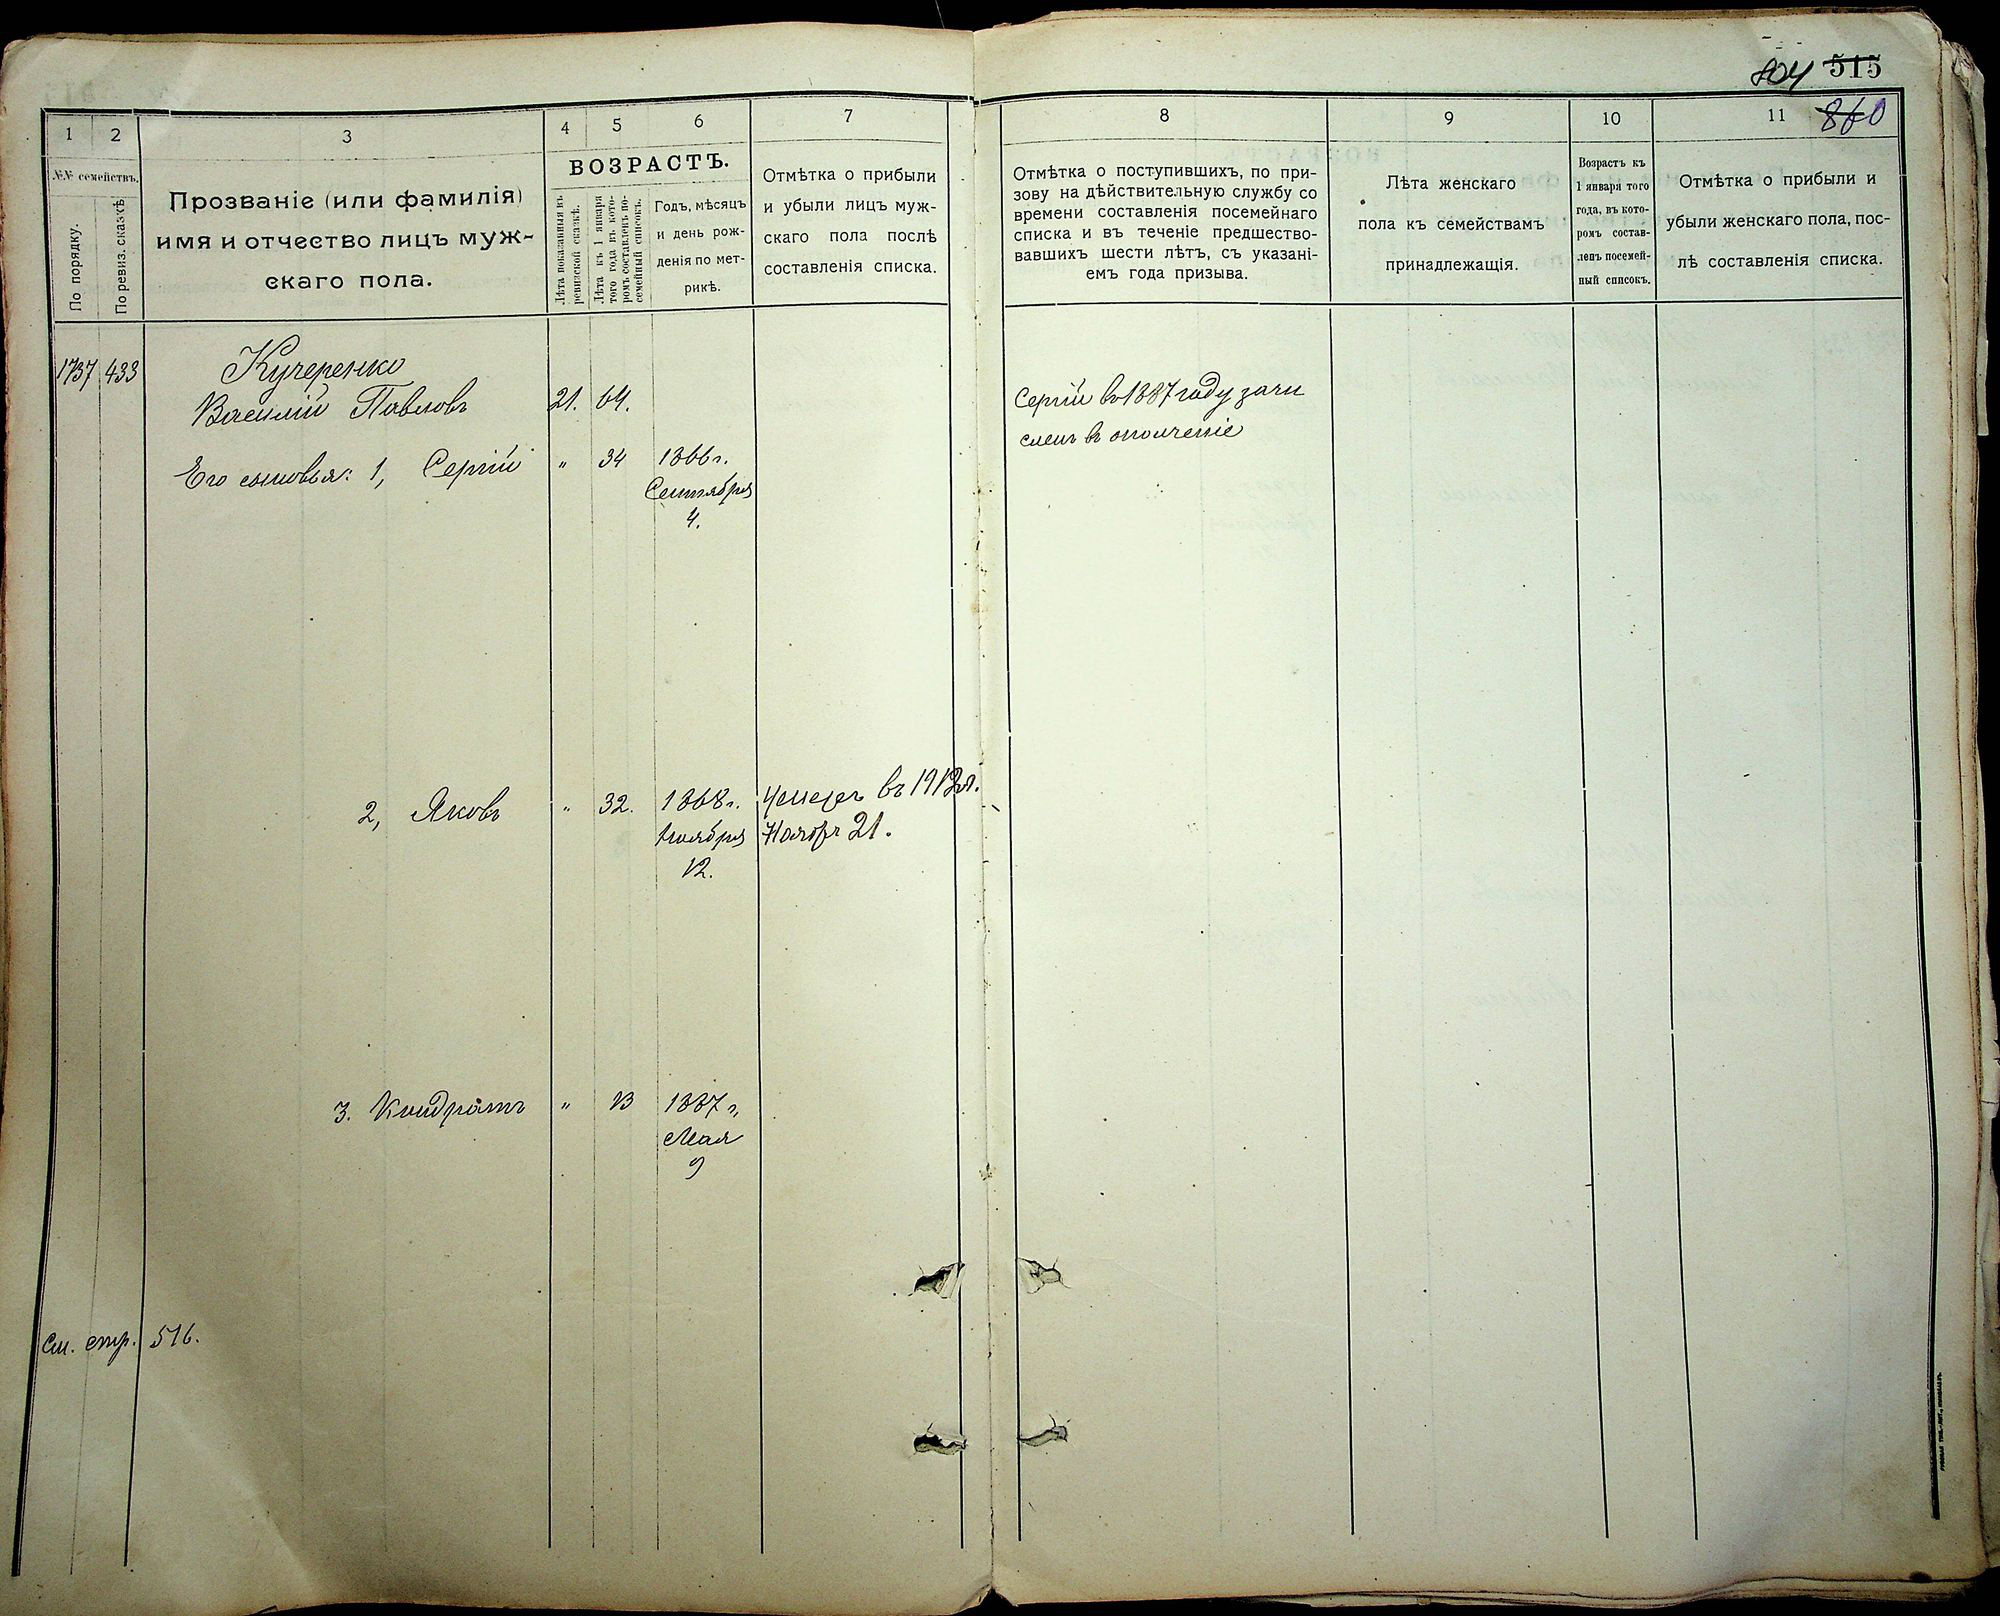 804 515
860
1
2
3
4
5
6
7
8
9
10
11
№№ семействъ.
По порядку.
По ревиз. сказкѣ.
Прозваніе (или фамилія)
имя и отчество лицъ муж-
скаго пола.
ВОЗРАСТЪ.
Лѣта показанныя въ
ревизской сказкѣ.
Лѣта къ 1 января
того года въ кото-
ромъ составленъ по-
семейный списокъ.
Годъ, мѣсяцъ
и день рож-
денія по мет-
рикѣ.
Отмѣтка о прибыли
и убыли лицъ муж-
скаго пола послѣ
составленія списка.
Отмѣтка о поступившихъ, по при-
зову на дѣйствительную службу со
времени составленія посемейнаго
списка и въ теченіе предшество-
вавшихъ шести лѣтъ, съ указані-
емъ года призыва.
Лѣта женскаго
пола къ семействамъ
принадлежащія.
Возрастъ къ
1 января того
года, въ кото-
ромъ состав-
ленъ посемей-
ный списокъ.
Отмѣтка о прибыли и
убыли женскаго пола, пос-
лѣ составленія списка.
1737 433 Кучеренко
Василій Павловъ 21. 64.
Его сыновья: 1, Сергій " 34 1866 г.
Сентября
4.
Сергій въ 1887 году зачи
сленъ въ ополченіе
2, Яковъ " 32. 1868 г. Умеръ въ 1912 г.
Ноября Ноябр 21.
12.
3. Кондратъ " 13 1887 г.
Мая
9
См. стр. 516.